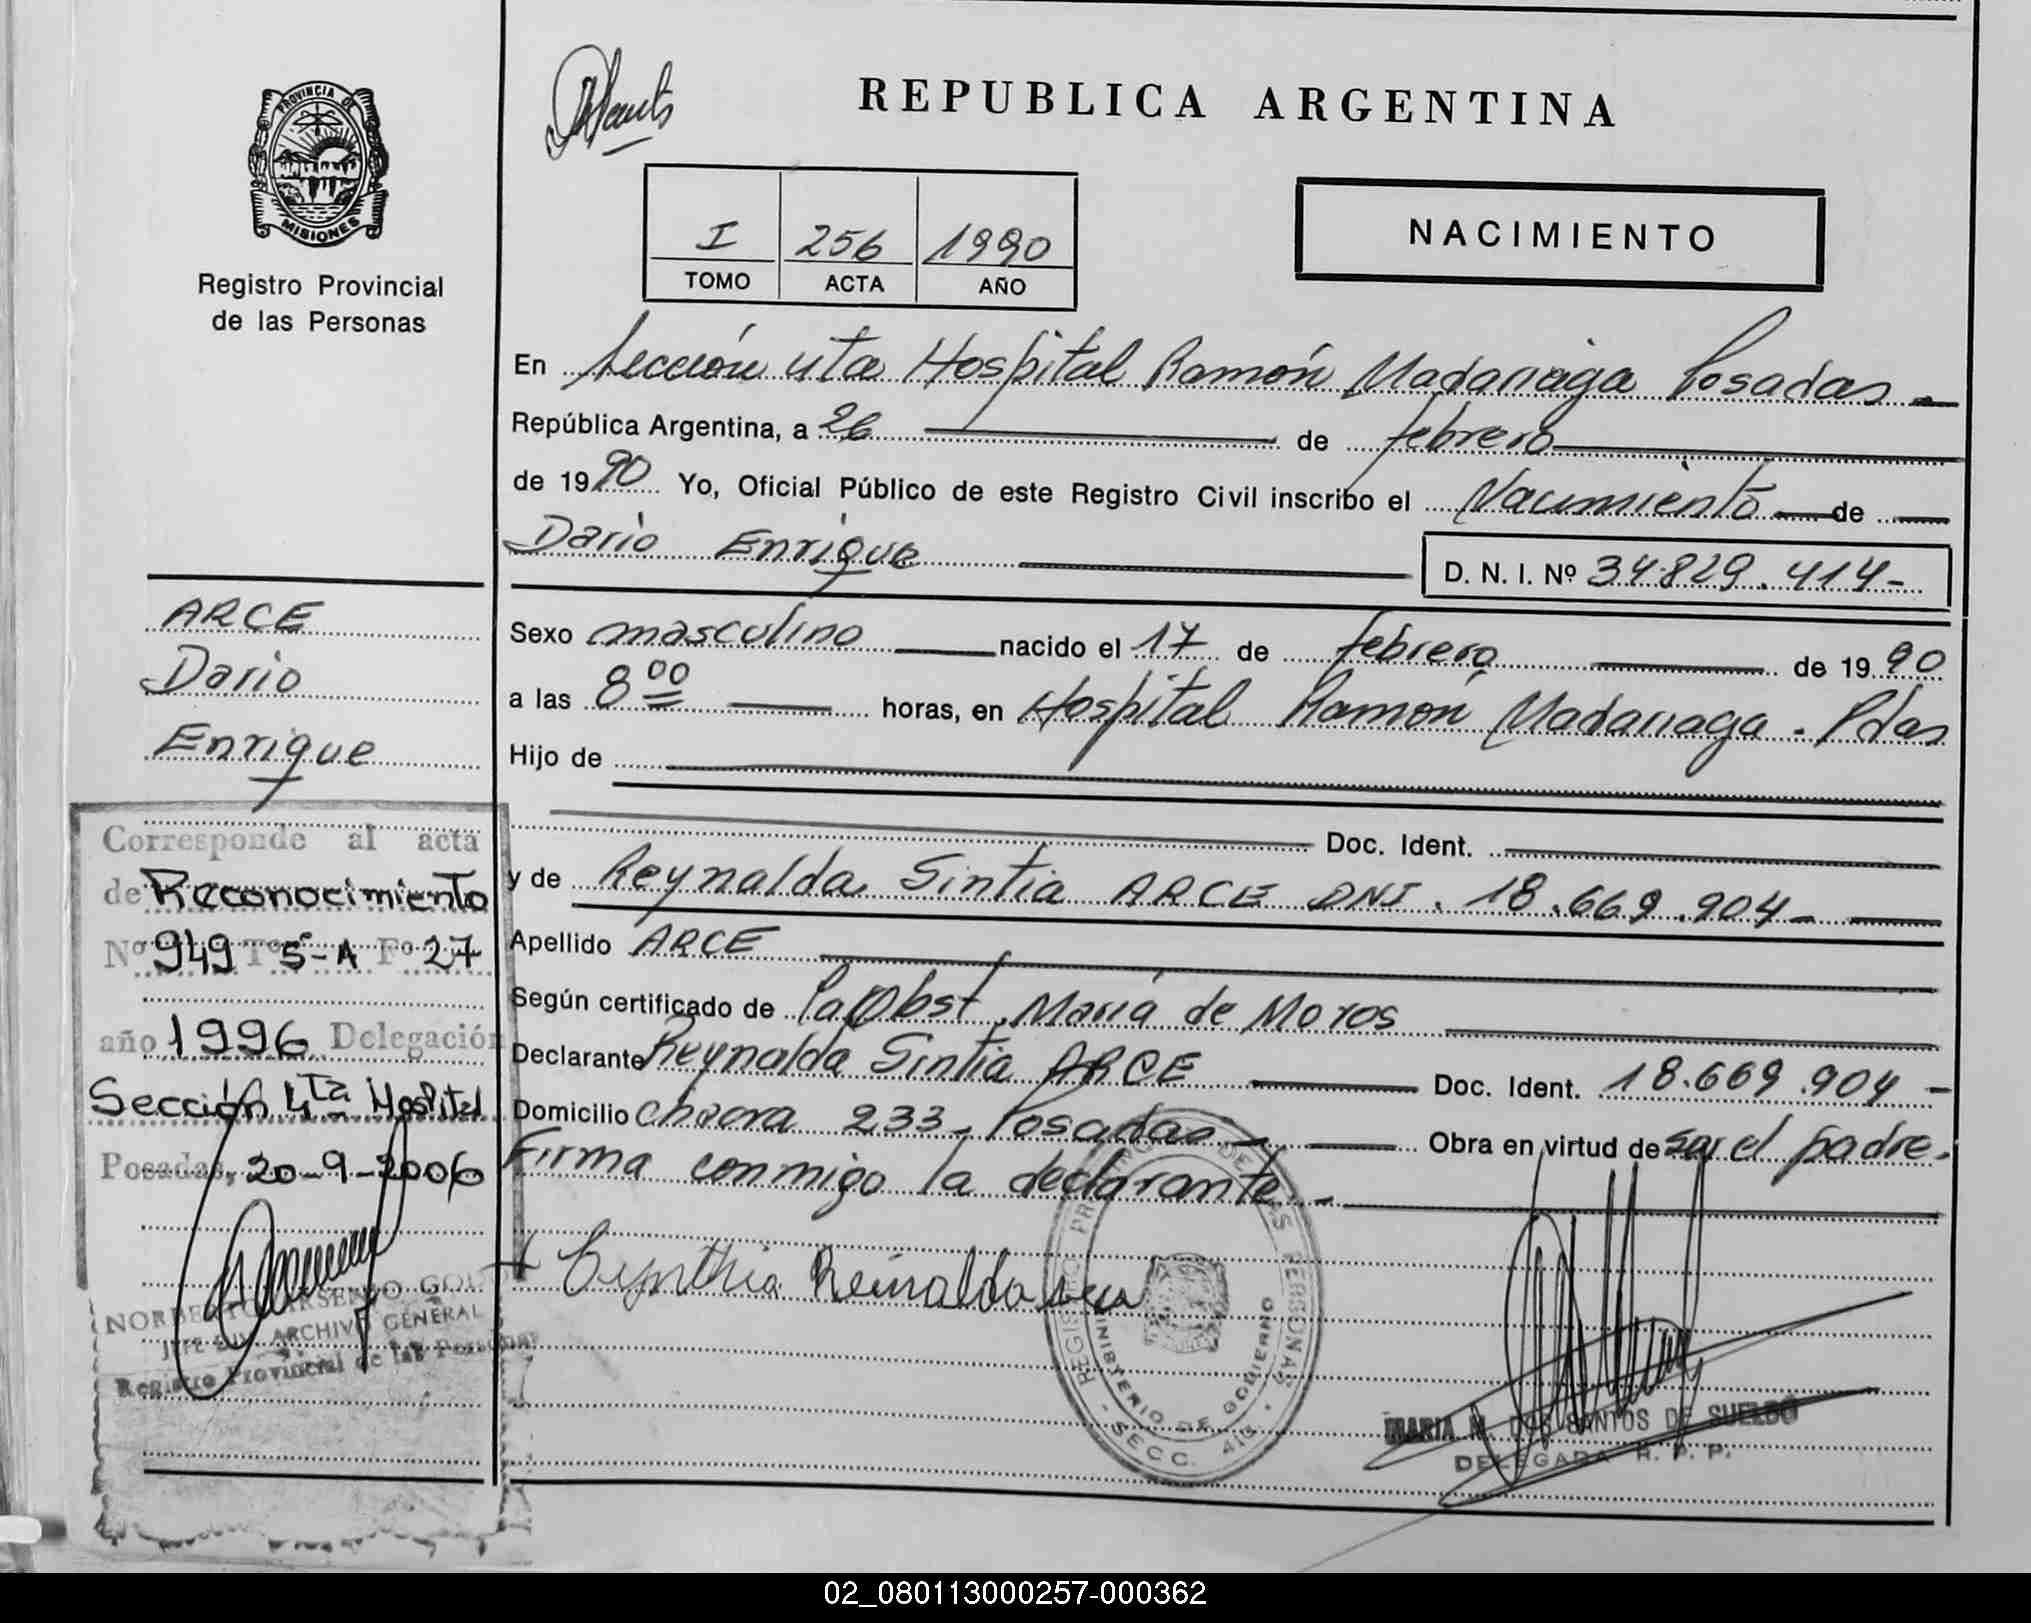 PROVINCIA DE
MISIONES
Registro Provincial
de las Personas
REPUBLICA ARGENTINA
I 256 1990
TOMO ACTA AÑO
NACIMIENTO
En Sección 4ta Hospital Ramón Madariaga Posadas
República Argentina, a 26 de febrero
de 1990 Yo, Oficial Público de este Registro Civil inscribo el Nacimiento de
Dario Enrique
D. N. I. Nº 34.829.414-
ARCE
Dario
Enrique
Sexo masculino nacido el 17 de febrero de 1990
a las 8 00 horas, en Hospital Ramón Madariaga. Pdas
Hijo de
Doc. Ident.
y de Reynalda Sintia ARCE DNI. 18.669.904-
Apellido ARCE
Según certificado de María de Moros
Declarante Reynalda Sintia ARCE Doc. Ident. 18.669.904-
Domicilio chacra 233- Posadas- Obra en virtud de ser el padre.
Firma conmigo la declarante.-
Corresponde al acta
de Reconocimiento
Nº 949 Tº 5-A Fº 27
año 1996 Delegación
Sección 4ta Hospital
Posadas, 20-9-2006
NORBERTO ARSENIO
JEFE DIV. ARCHIVO GENERAL
Registro Provincial de las Personas
Cynthia Reinalda
REGISTRO PROVINCIAL DE LAS PERSONAS
MINISTERIO DE GOBIERNO
- SECC. 4ta. -
MARIA M. DOS SANTOS DE SUELDO
DELEGADA R. P. P.
02_080113000257-000362